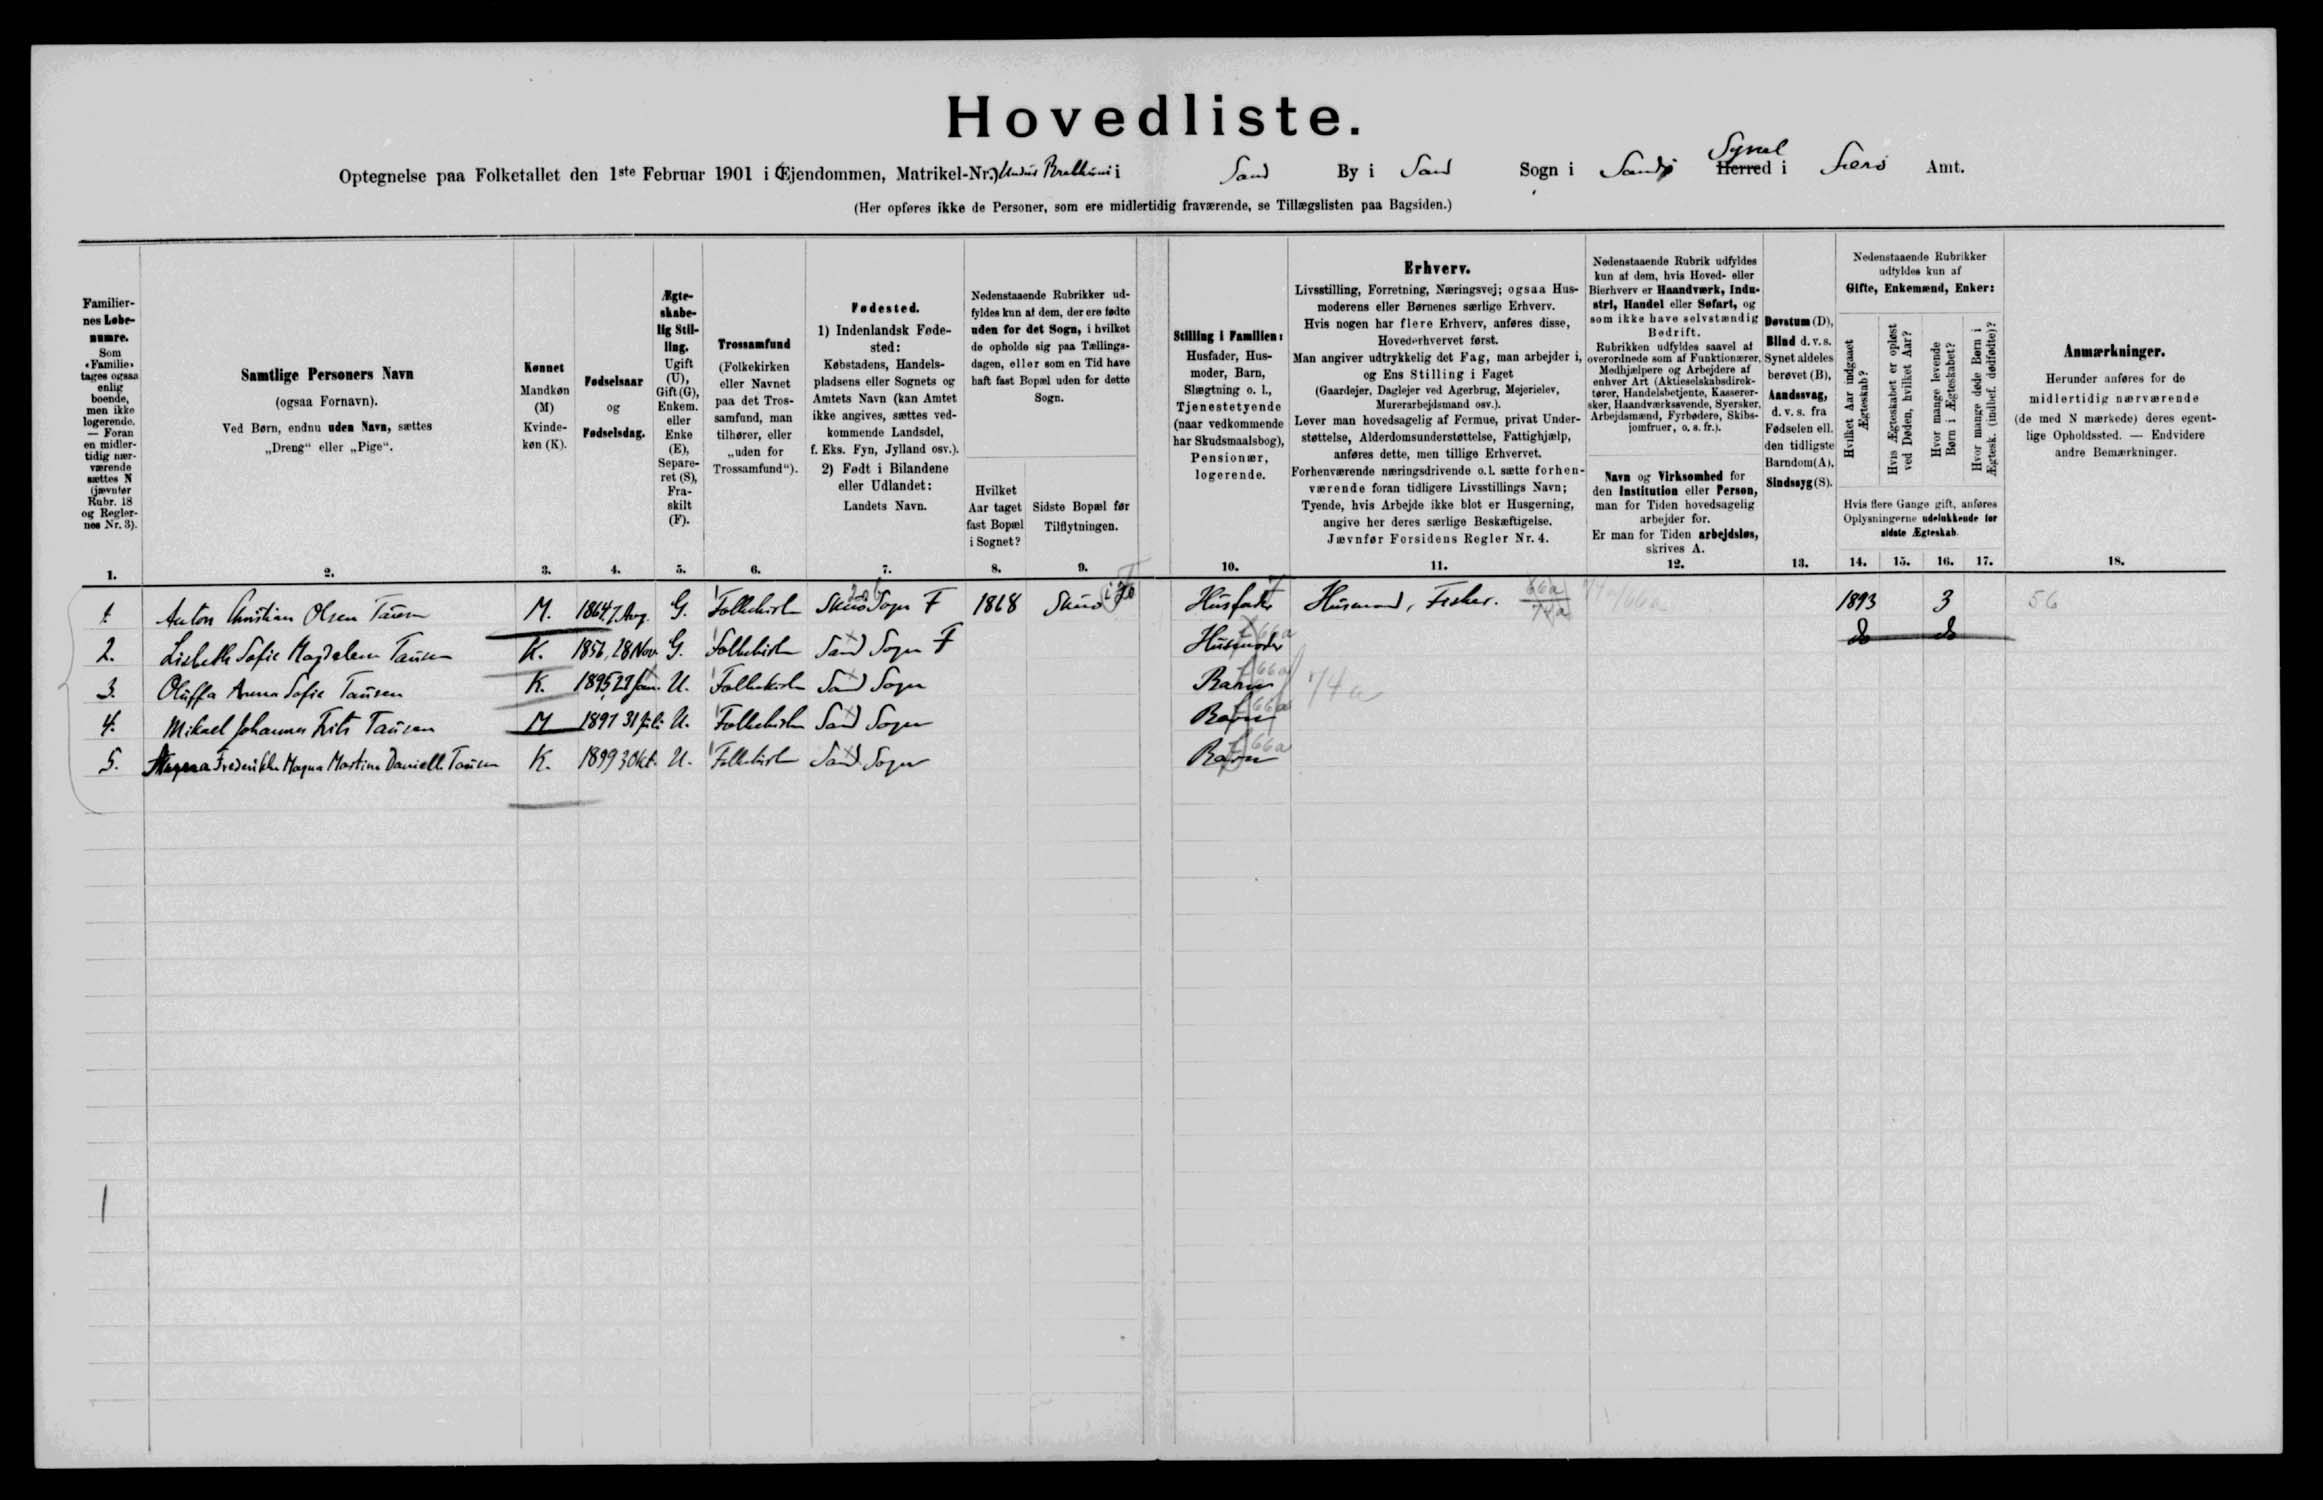 Hovedliste.
Optegnelse paa Folketallet den 1ste Februar 1901 i (Ejendommen, Matrikel-Nr.) Undir Brekkuni i Sand By i Sand Sogn i Sandø Herred Syssel i Færø Amt.
(Her opføres ikke de Personer, som ere midlertidig fraværende, se Tillægslisten paa Bagsiden.)
Familier-
nes Løbe-
numre.
Som
«Familie»
tages ogsaa
enlig
boende,
men ikke
logerende.
— Foran
en midler-
tidig nær-
værende
sættes N
(jævnfør
Rubr. 18
og Regler-
nes Nr. 3).
Samtlige Personers Navn
(ogsaa Fornavn).
Ved Børn, endnu uden Navn, sættes
„Dreng“ eller „Pige“.
Kønnet
Mandkøn
(M)
Kvinde-
køn (K).
Fødselsaar
og
Fødselsdag.
Ægte-
skabe-
lig Stil-
ling.
Ugift
(U),
Gift (G),
Enkem.
eller
Enke
(E),
Separe-
ret (S),
Fra-
skilt
(F).
Trossamfund
(Folkekirken
eller Navnet
paa det Tros-
samfund, man
tilhører, eller
„uden for
Trossamfund“).
Fødested.
1) Indenlandsk Føde-
sted:
Købstadens, Handels-
pladsens eller Sognets og
Amtets Navn (kan Amtet
ikke angives, sættes ved-
kommende Landsdel,
f. Eks. Fyn, Jylland osv.).
2) Født i Bilandene
eller Udlandet:
Landets Navn.
Nedenstaaende Rubrikker ud-
fyldes kun af dem, der ere fødte
uden for det Sogn, i hvilket
de opholde sig paa Tællings-
dagen, eller som en Tid have
haft fast Bopæl uden for dette
Sogn.
Hvilket
Aar taget
fast Bopæl
i Sognet?
Sidste Bopæl før
Tilflytningen.
Stilling i Familien:
Husfader, Hus-
moder, Barn,
Slægtning o. l.,
Tjenestetyende
(naar vedkommende
har Skudsmaalsbog),
Pensionær,
logerende.
Erhverv.
Livsstilling, Forretning, Næringsvej; ogsaa Hus-
moderens eller Børnenes særlige Erhverv.
Hvis nogen har flere Erhverv, anføres disse,
Hovederhvervet først.
Man angiver udtrykkelig det Fag, man arbejder i,
og Ens Stilling i Faget
(Gaardejer, Daglejer ved Agerbrug, Mejerielev,
Murerarbejdsmand osv.).
Lever man hovedsagelig af Formue, privat Under-
støttelse, Alderdomsunderstøttelse, Fattighjælp,
anføres dette, men tillige Erhvervet.
Forhenværende næringsdrivende o. l. sætte forhen-
værende foran tidligere Livsstillings Navn;
Tyende, hvis Arbejde ikke blot er Husgerning,
angive her deres særlige Beskæftigelse.
Jævnfør Forsidens Regler Nr. 4.
Nedenstaaende Rubrik udfyldes
kun af dem, hvis Hoved- eller
Bierhverv er Haandværk, Indu-
stri, Handel eller Søfart, og
som ikke have selvstændig
Bedrift.
Rubrikken udfyldes saavel af
overordnede som af Funktionærer,
Medhjælpere og Arbejdere af
enhver Art (Aktieselskabsdirek-
tører, Handelsbetjente, Kasserer-
sker, Haandværkssvende, Syersker,
Arbejdsmænd, Fyrbødere, Skibs-
jomfruer, o. s. fr.).
Navn og Virksomhed for
den Institution eller Person,
man for Tiden hovedsagelig
arbejder for.
Er man for Tiden arbejdsløs,
skrives A.
Døvstum (D),
Blind d. v. s.
Synet aldeles
berøvet (B),
Aandssvag,
d. v. s. fra
Fødselen ell.
den tidligste
Barndom (A),
Sindssyg (S).
Nedenstaaende Rubrikker
udfyldes kun af
Gifte, Enkemænd, Enker:
Hvilket Aar indgaaet
Ægteskab?
Hvis Ægteskabet er opløst
ved Døden, hvilket Aar?
Hvor mange levende
Børn i Ægteskabet?
Hvor mange døde Børn i
Ægtesk. (indbef. dødfødte)?
Hvis flere Gange gift, anføres
Oplysningerne udelukkende for
sidste Ægteskab.
Anmærkninger.
Herunder anføres for de
midlertidig nærværende
(de med N mærkede) deres egent-
lige Opholdssted. — Endvidere
andre Bemærkninger.
1. 2. 3. 4. 5. 6. 7. 8. 9. 10. 11. 12. 13. 14. 15. 16. 17. 18.
1. Anton Christian Olsen Tausen M. 1864, 7. Aug. G. Folkekirken Skuø Sogn F 1868 Skuø Husfader Husmand, Fisker. 66a 74a 1893 3 56
2. Lisbeth Sofie Magdalene Tausen K. 1856, 28 Nov. G. Folkekirken Sand Sogn F Husmoder do do
3. Oluffa Anna Sofie Tausen K. 1895, 29 Jan. U. Folkekirken Sand Sogn Barn 66a
4. Mikael Johannes Frits Tausen M 1897 31 Juli U. Folkekirken Sand Sogn Barn 66a
5. Frederikke Magna Martine Danielle Tausen K. 1899 3 Okt. U. Folkekirken Sand Sogn Barn 66a